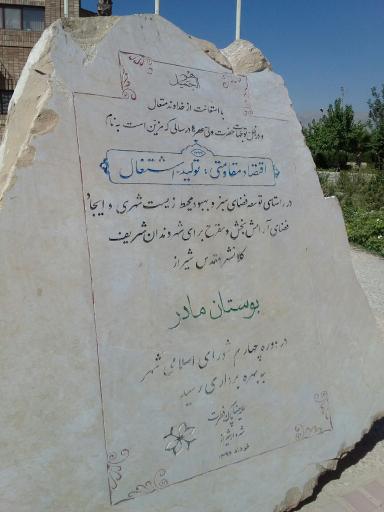 هو الحمید
با استعانت از خداوند متعال
و در ظل توجهات حضرت ولی عصر در سالی که مزین است به نام
اقتصاد مقاومتی: تولید - اشتغال
در راستای توسعه فضای سبز و بهبود محیط زیست شهری و ایجاد
فضای آرامش بخش و مفرح برای شهروندان شریف
کلانشهر مقدس شیراز
بوستان مادر
در دوره چهارم شورای اسلامی شهر
به بهره برداری رسید
علیرضا پاک فطرت
شهردار شیراز
خرداد ۱۳۹۶